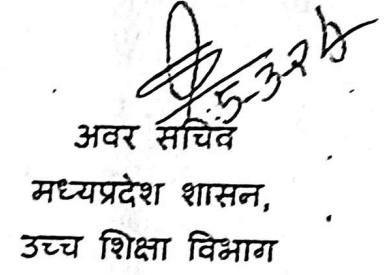 5-3-26
अवर सचिव
मध्यप्रदेश शासन,
उच्च शिक्षा विभाग